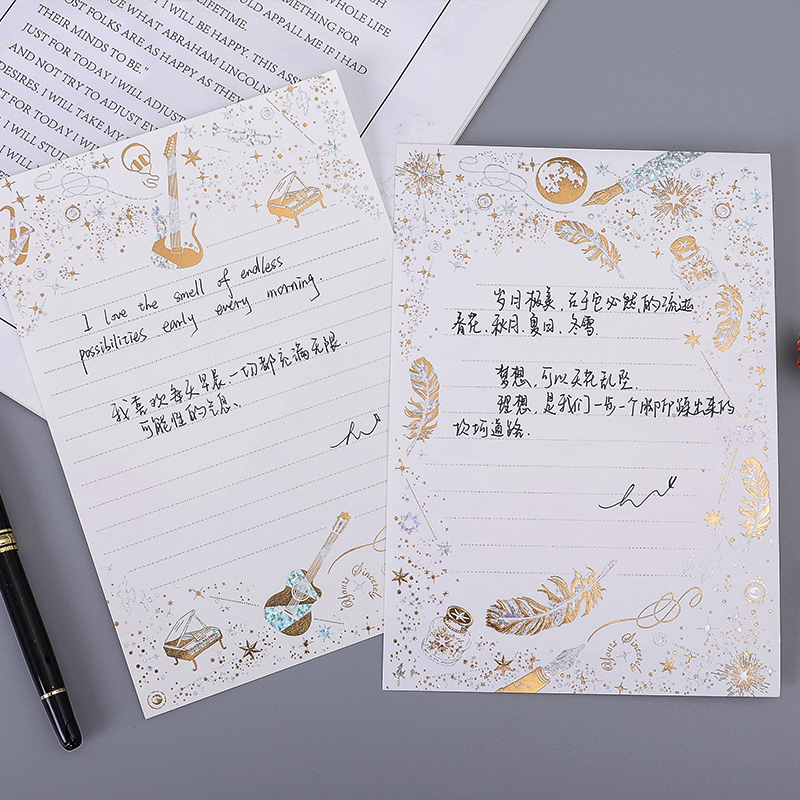 WHOLE LIFE
SOMETHING FOR
LIFETIME
WOULD APPALL ME IF I HAD
THEIR MINDS TO BE'
WHAT ABRAHAM LINCOLN
I WILL BE HAPPY. THIS
MOST FOLKS ARE AS HAPPY AS THEY
JUST FOR TODAY I WILL ADJUST
AND NOT TRY TO ADJUST
DESIRES. I WILL TAKE MY
FOR TODAY I WILL
I WILL STUDY
I love the smell of endless
possibilities early every morning.
我喜欢每天早晨、一切都充满无限
可能性的气息.
Yours Sincerely
岁月极美,在于它必然的流逝
春花、秋月、夏日、冬雪.
梦想,可以天花乱坠.
理想,是我们一步一个脚印踩出来的
坎坷道路.
Yours Sincerely